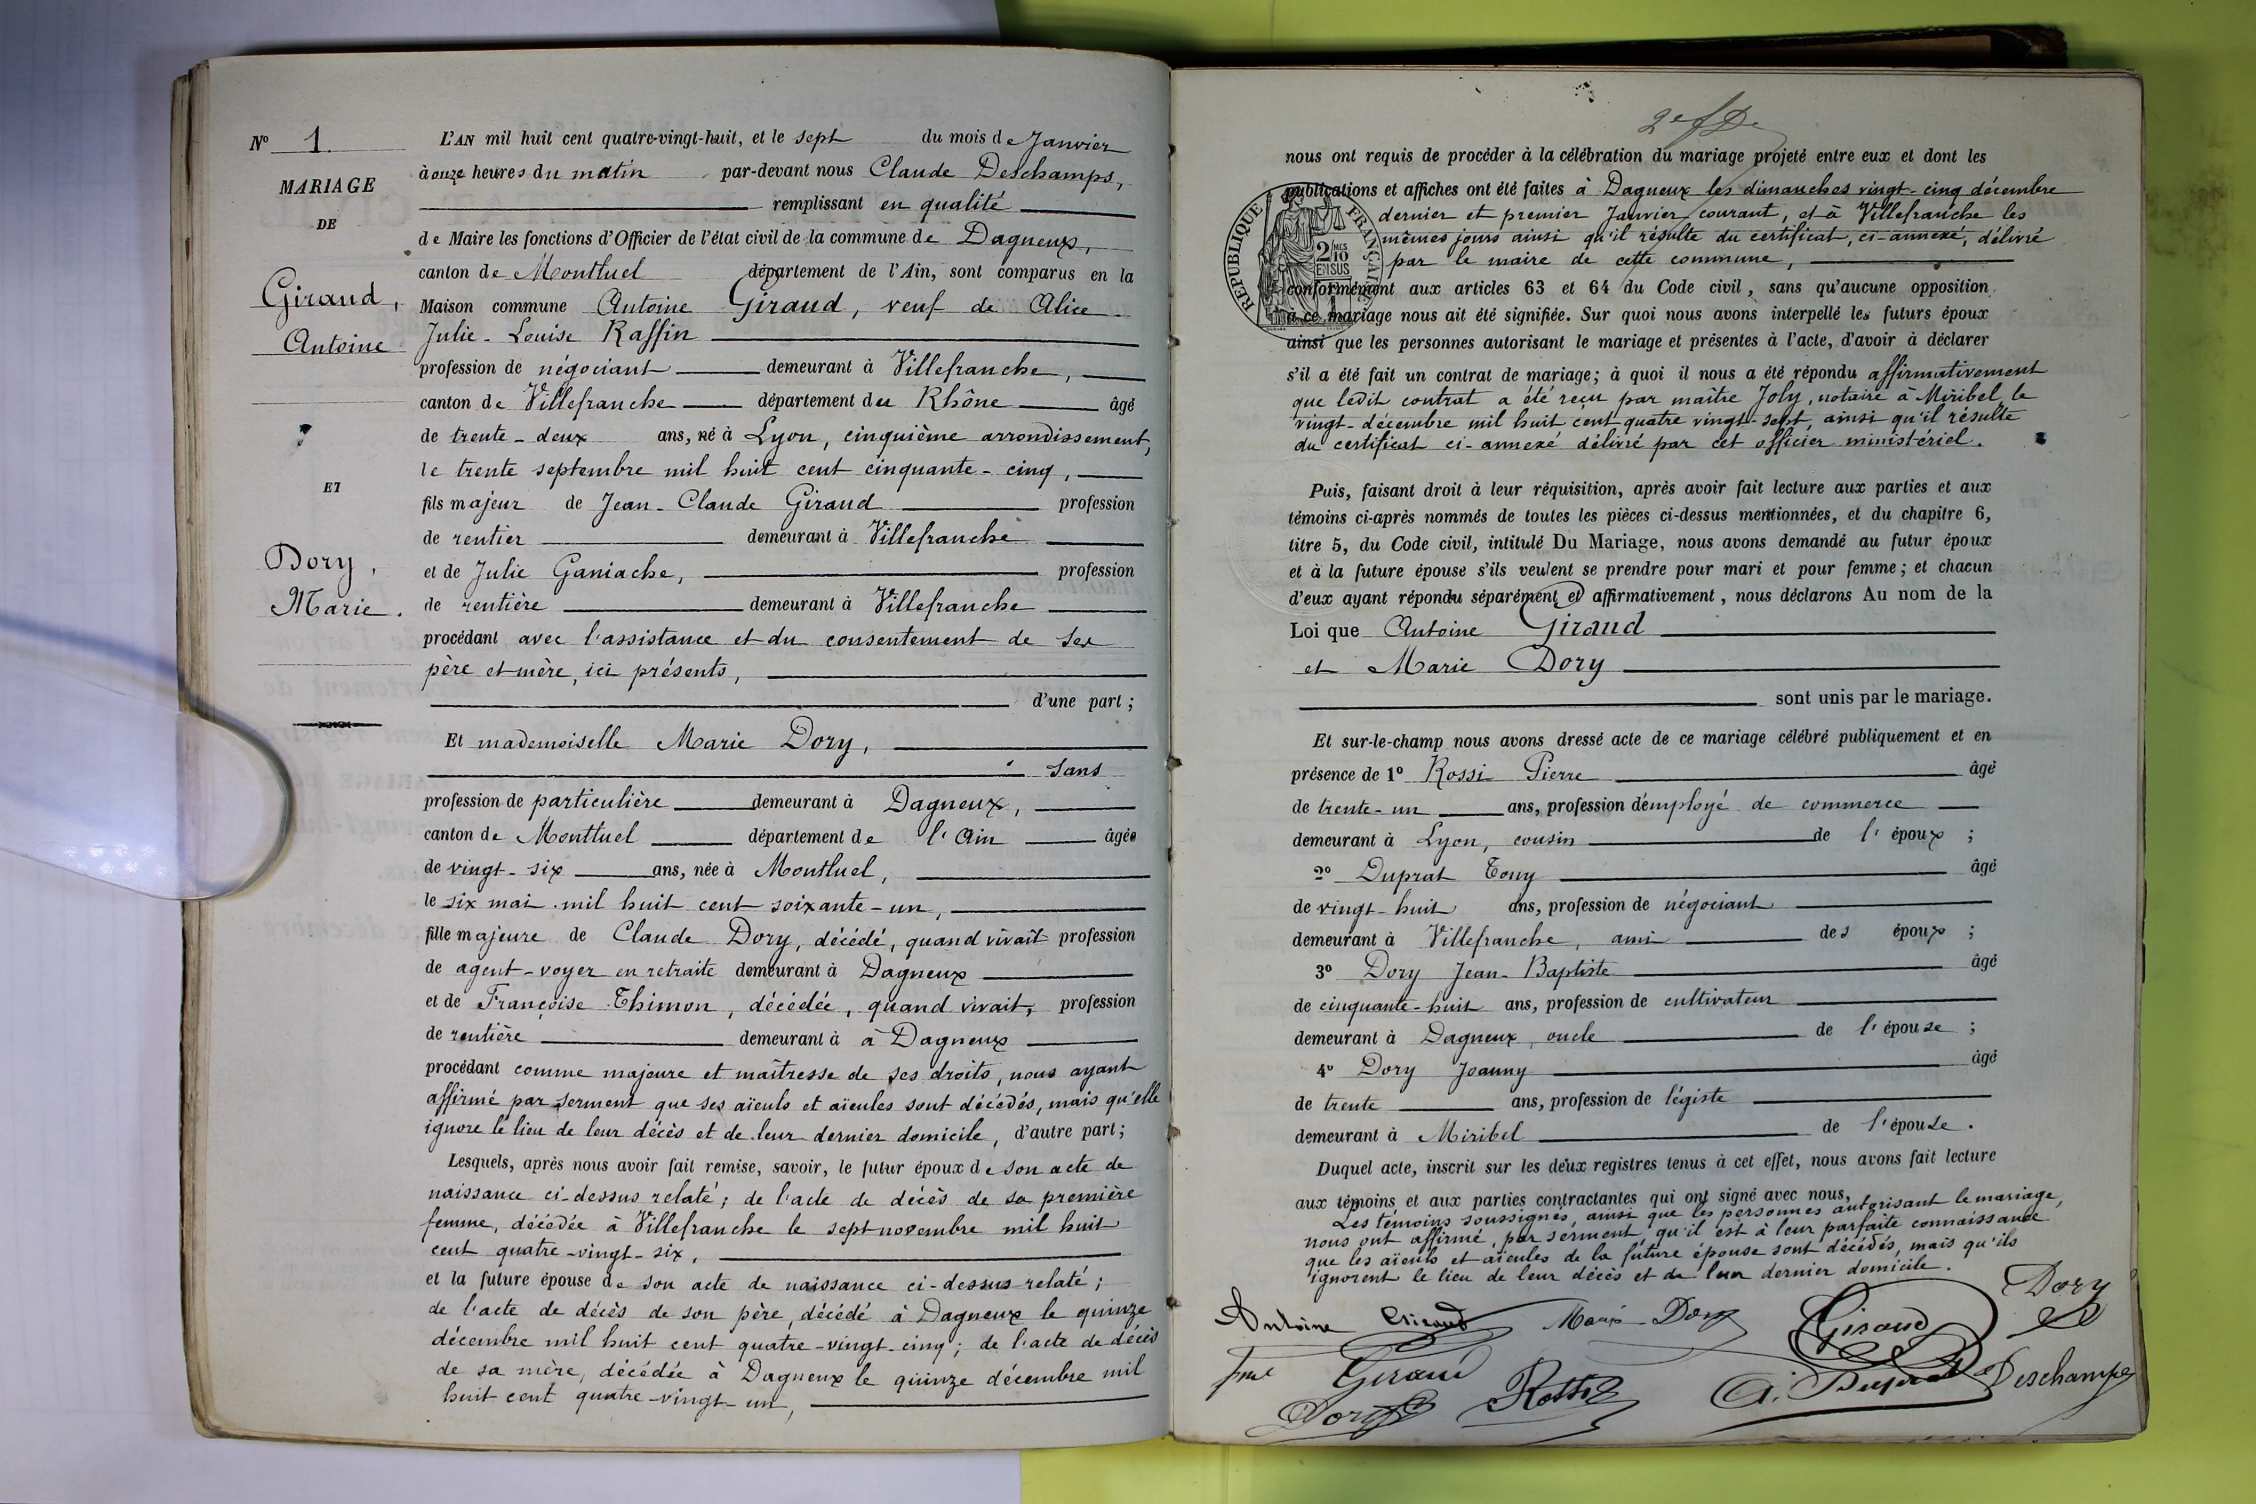 Nº 1.
MARIAGE
DE
Giraud,
Antoine
ET
Dory,
Marie.
L'AN mil huit cent quatre-vingt-huit, et le sept du mois de Janvier
à onze heures du matin par-devant nous Claude Deschamps,
remplissant en qualité
de Maire les fonctions d'Officier de l'état civil de la commune de Dagneux,
canton de Montluel département de l'Ain, sont comparus en la
Maison commune Antoine Giraud, veuf de Alice
Julie-Louise Raffin
profession de négociant demeurant à Villefranche,
canton de Villefranche département du Rhône âgé
de trente-deux ans, né à Lyon, cinquième arrondissement,
le trente septembre mil huit cent cinquante-cinq,
fils majeur de Jean-Claude Giraud profession
de rentier demeurant à Villefranche
et de Julie Ganiache, profession
de rentière demeurant à Villefranche
procédant avec l'assistance et du consentement de ses
père et mère, ici présents,
d'une part;
Et mademoiselle Marie Dory,
sans
profession de particulière demeurant à Dagneux,
canton de Montluel département de l'Ain âgée
de vingt-six ans, née à Montluel,
le six mai mil huit cent soixante-un,
fille majeure de Claude Dory, décédé, quand vivait profession
de agent-voyer en retraite demeurant à Dagneux
et de Françoise Thimon, décédée, quand vivait, profession
de rentière demeurant à à Dagneux
procédant comme majeure et maîtresse de ses droits, nous ayant
affirmé par serment que ses aïeuls et aïeules sont décédés, mais qu'elle
ignore le lieu de leur décès et de leur dernier domicile, d'autre part;
Lesquels, après nous avoir fait remise, savoir, le futur époux de son acte de
naissance ci-dessus relaté; de l'acte de décès de sa première
femme, décédée à Villefranche le sept novembre mil huit
cent quatre-vingt-six,
et la future épouse de son acte de naissance ci-dessus relaté;
de l'acte de décès de son père, décédé à Dagneux le quinze
décembre mil huit cent quatre-vingt-cinq; de l'acte de décès
de sa mère, décédée à Dagneux le quinze décembre mil
huit cent quatre-vingt-un,
nous ont requis de procéder à la célébration du mariage projeté entre eux et dont les
publications et affiches ont été faites à Dagneux les dimanches vingt-cinq décembre
dernier et premier Janvier courant, et à Villefranche les
mêmes jours ainsi qu'il résulte du certificat, ci-annexé, délivré
par le maire de cette commune,
RÉPUBLIQUE FRANÇAISE
2/10
EN SUS
conformément aux articles 63 et 64 du Code civil, sans qu'aucune opposition
à ce mariage nous ait été signifiée. Sur quoi nous avons interpellé les futurs époux
ainsi que les personnes autorisant le mariage et présentes à l'acte, d'avoir à déclarer
s'il a été fait un contrat de mariage; à quoi il nous a été répondu affirmativement
que ledit contrat a été reçu par maître Joly, notaire à Miribel, le
vingt-décembre mil huit cent quatre vingt-sept, ainsi qu'il résulte
du certificat ci-annexé délivré par cet officier ministériel.
Puis, faisant droit à leur réquisition, après avoir fait lecture aux parties et aux
témoins ci-après nommés de toutes les pièces ci-dessus mentionnées, et du chapitre 6,
titre 5, du Code civil, intitulé Du Mariage, nous avons demandé au futur époux
et à la future épouse s'ils veulent se prendre pour mari et pour femme; et chacun
d'eux ayant répondu séparément et affirmativement, nous déclarons Au nom de la
Loi que Antoine Giraud
et Marie Dory
sont unis par le mariage.
Et sur-le-champ nous avons dressé acte de ce mariage célébré publiquement et en
présence de 1º Rossi Pierre âgé
de trente-un ans, profession d'employé de commerce
demeurant à Lyon, cousin de l'époux;
2º Duprat Tony âgé
de vingt-huit ans, profession de négociant
demeurant à Villefranche, ami des époux;
3º Dory Jean-Baptiste âgé
de cinquante-huit ans, profession de cultivateur
demeurant à Dagneux, oncle de l'épouse;
4º Dory Joanny âgé
de trente ans, profession de légiste
demeurant à Miribel de l'épouse.
Duquel acte, inscrit sur les deux registres tenus à cet effet, nous avons fait lecture
aux témoins et aux parties contractantes qui ont signé avec nous,
Les témoins soussignés, ainsi que les personnes autorisant le mariage,
nous ont affirmé, par serment, qu'il est à leur parfaite connaissance
que les aïeuls et aïeules de la future épouse sont décédés, mais qu'ils
ignorent le lieu de leur décès et de leur dernier domicile.
Antoine Giraud Marie Dory Giraud Dory
Giraud Rossi Duprat Deschamps
Dory